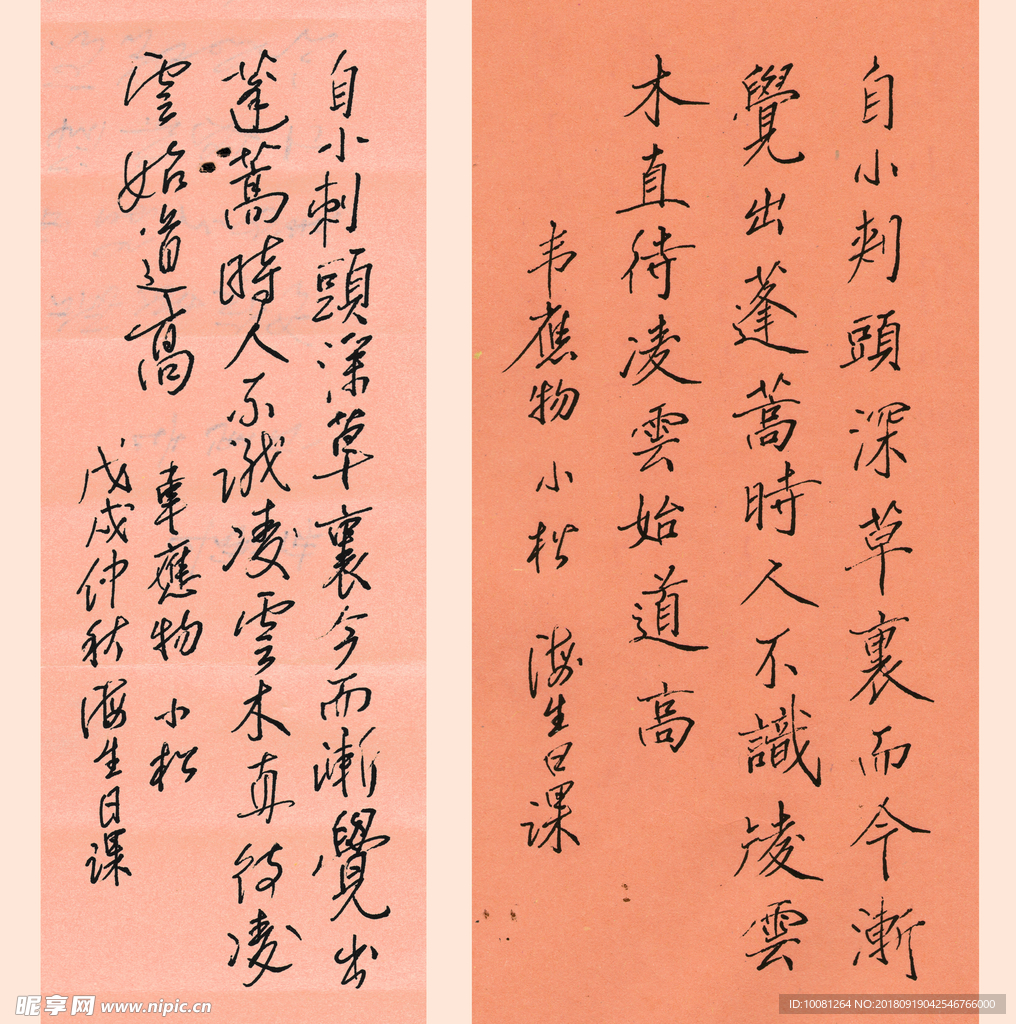 自小刺頭深草裏而今漸
覺出蓬蒿時人不識凌雲
木直待凌雲始道高
韦應物 小松 海生日课
自小刺頭深草裏今而漸覺出
蓬蒿時人不識凌雲木直待凌
雲始道高
韋應物 小松
戊戌仲秋海生日課
昵享网 www.nipic.cn
ID:10081264 NO:20180919042546766000